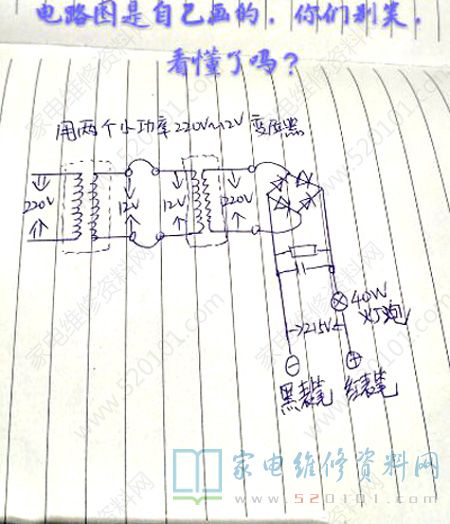 电路图是自己画的，你们别笑，
看懂了吗？
用两个小功率220V~12V变压器
220V
12V
12V
220V
40W
灯泡
215V
黑表笔 红表笔
家电维修资料网
www.520101.com